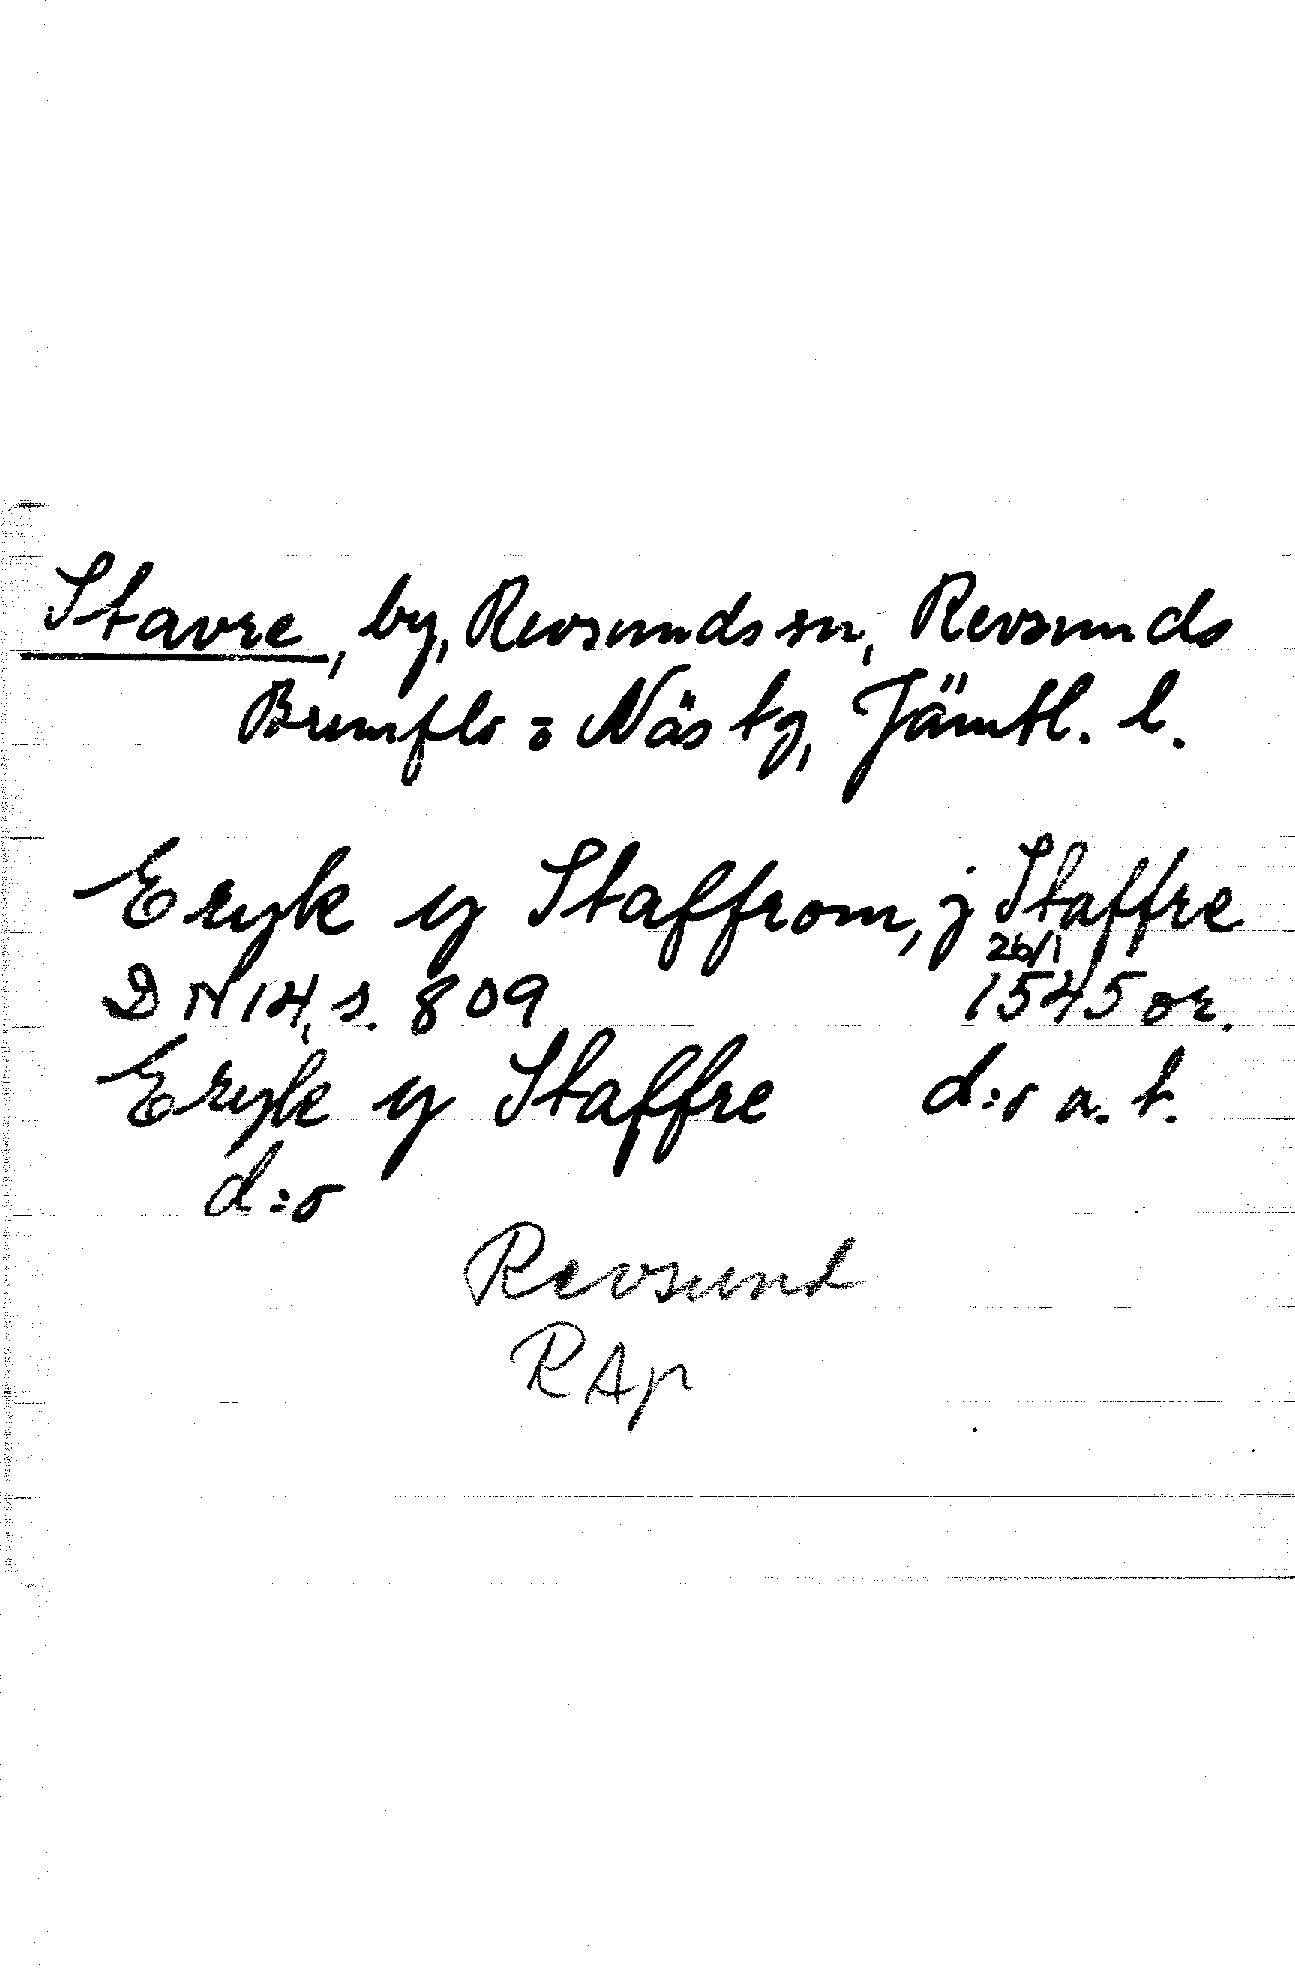 Stavre, by, Revsunds sn, Revsunds
Brunflo o Näs tg, Jämtl. l.
Eryk y Staffrom, j Staffre
26/1
DN 14, s. 809 1545 or.
Eryk y Staffre d:o a. t.
d:o
Revsund
RAp